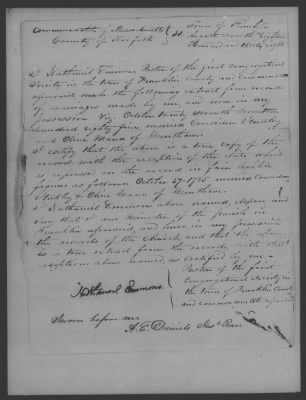 Commonwealth of Massachusetts
County of Norfolk
ss Town of Franklin
August seventh Eighteen
Hundred and thirty eight
I Nathaniel Emmons Pastor of the first congregational
Society in the town of Franklin County and Commonwealth
aforesaid make the following extract from records
of marriages made by me and now in my
possession Viz October twenty seventh seventeen
hundred eighty five married
and Olive Mann of Wrentham
I certify that the above is a true copy of the
record with the exception of the date which
is expressed in the record in fair legible
figures as follows October 27, 1785 married
& Olive Mann of Wrentham
I Nathaniel Emmons above named, depose and
say that I am Minister of the parish in
Franklin aforesaid, and have in my possession
the records of the Church, and that the above
is a true extract from the records, with the
exceptions above named, as certified by me
Pastor of the first
Congregational Society in
the town of Franklin County
and commonwealth aforesaid
Nathaniel Emmons
Sworn before me
A. E. Daniels Jus. Peace